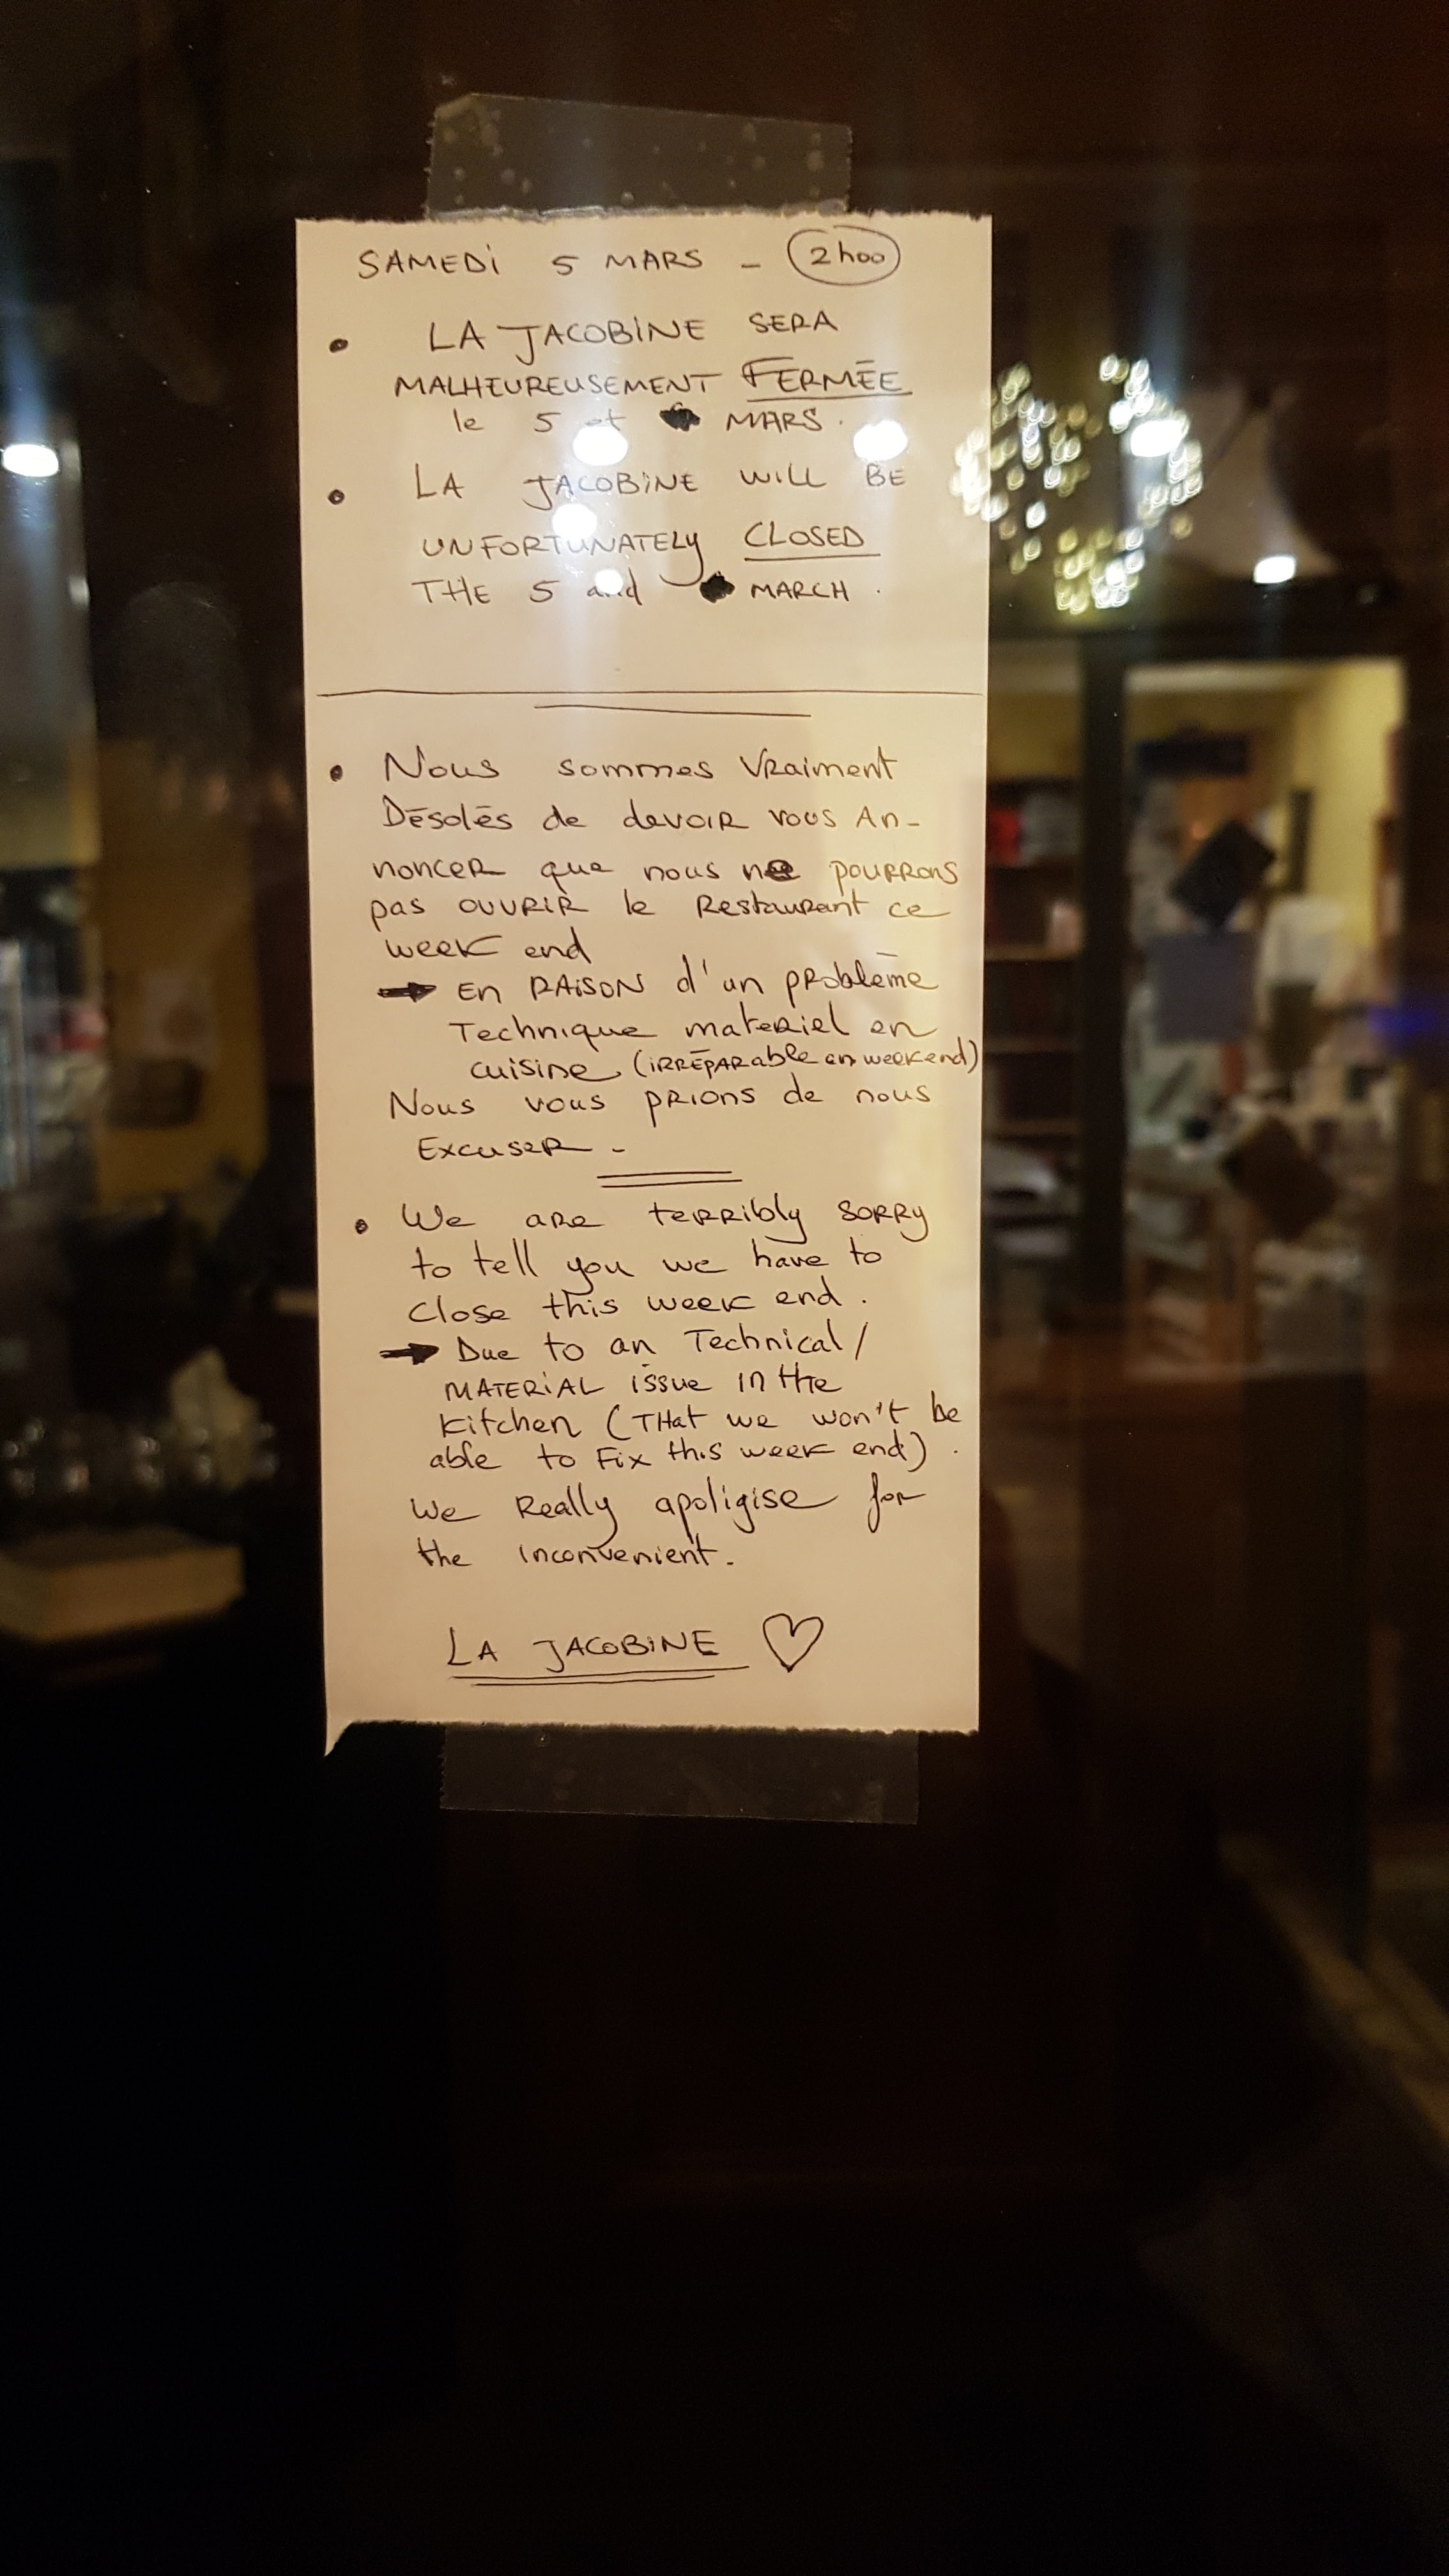 SAMEDI 5 MARS - 2h00
• LA JACOBINE SERA
MALHEUREUSEMENT FERMÉE
le 5 et MARS.
• LA JACOBINE WILL BE
UNFORTUNATELY CLOSED
THE 5 and MARCH.
• Nous sommes Vraiment
Désolés de devoir vous An-
noncer que nous ne pourrons
pas ouvrir le Restaurant ce
week end
→ En RAISON d'un problème
Technique materiel en
cuisine (irréparable en weekend)
Nous vous prions de nous
Excuser -
• We are terribly sorry
to tell you we have to
Close this week end.
→ Due to an Technical/
MATERIAL issue in the
Kitchen (THat we won't be
able to Fix this week end).
We Really apoligise for
the inconvenient.
LA JACOBINE ♡